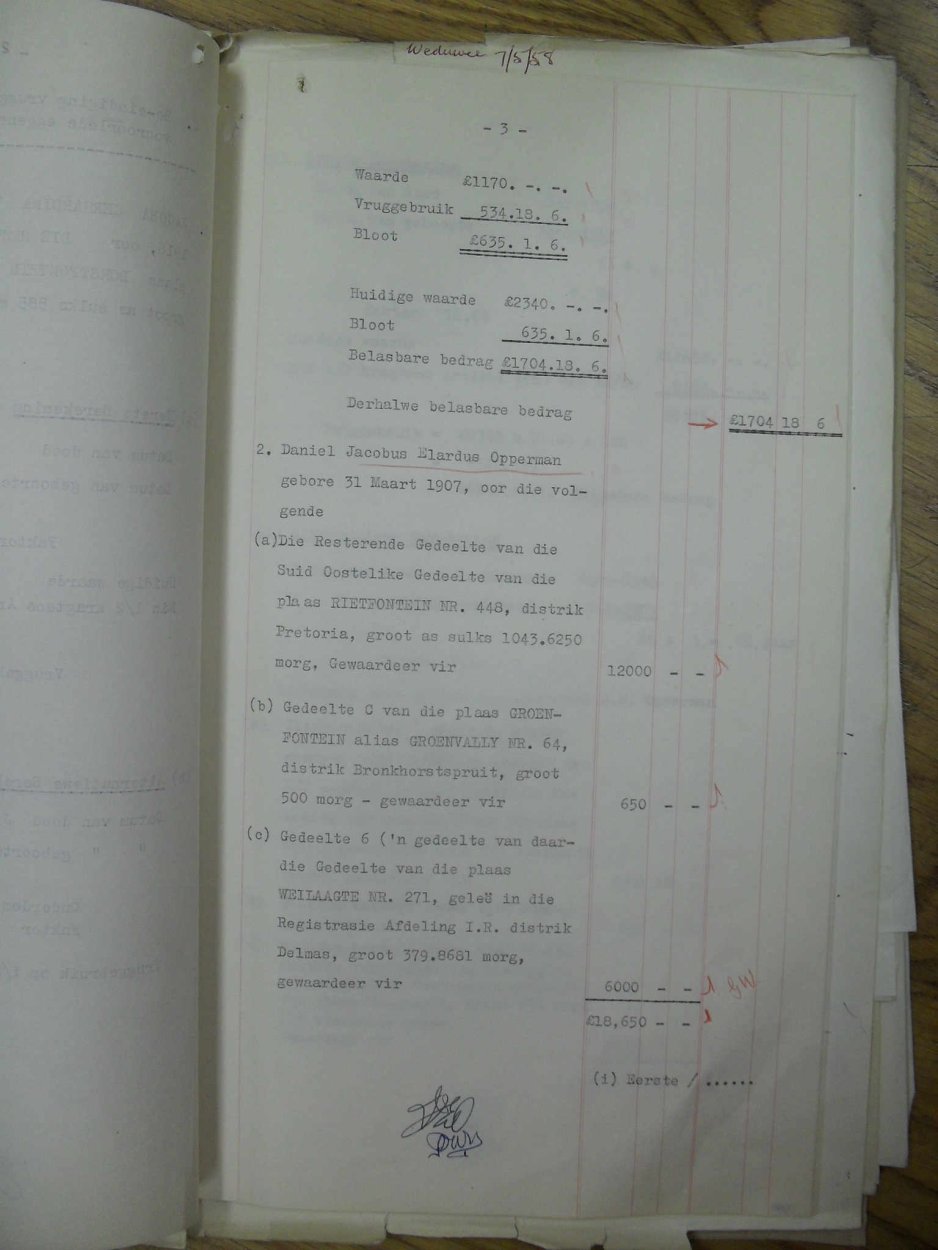 Weduwee 7/5/58
- 3 -
Waarde £1170. -. -.
Vruggebruik 534.18. 6.
Bloot £635. 1. 6.
Huidige waarde £2340. -. -.
Bloot 635. 1. 6.
Belasbare bedrag £1704.18. 6.
Derhalwe belasbare bedrag £1704 18 6
2. Daniel Jacobus Elardus Opperman
gebore 31 Maart 1907, oor die vol-
gende
(a)Die Resterende Gedeelte van die
Suid Oostelike Gedeelte van die
plaas RIETFONTEIN NR. 448, distrik
Pretoria, groot as sulks 1043.6250
morg, Gewaardeer vir 12000 - -
(b) Gedeelte C van die plaas GROEN-
FONTEIN alias GROENVALLY NR. 64,
distrik Bronkhorstspruit, groot
500 morg - gewaardeer vir 650 - -
(c) Gedeelte 6 ('n gedeelte van daar-
die Gedeelte van die plaas
WEILAAGTE NR. 271, geleë in die
Registrasie Afdeling I.R. distrik
Delmas, groot 379.8681 morg,
gewaardeer vir 6000 - -
£18,650 - -
(i) Eerste / ......